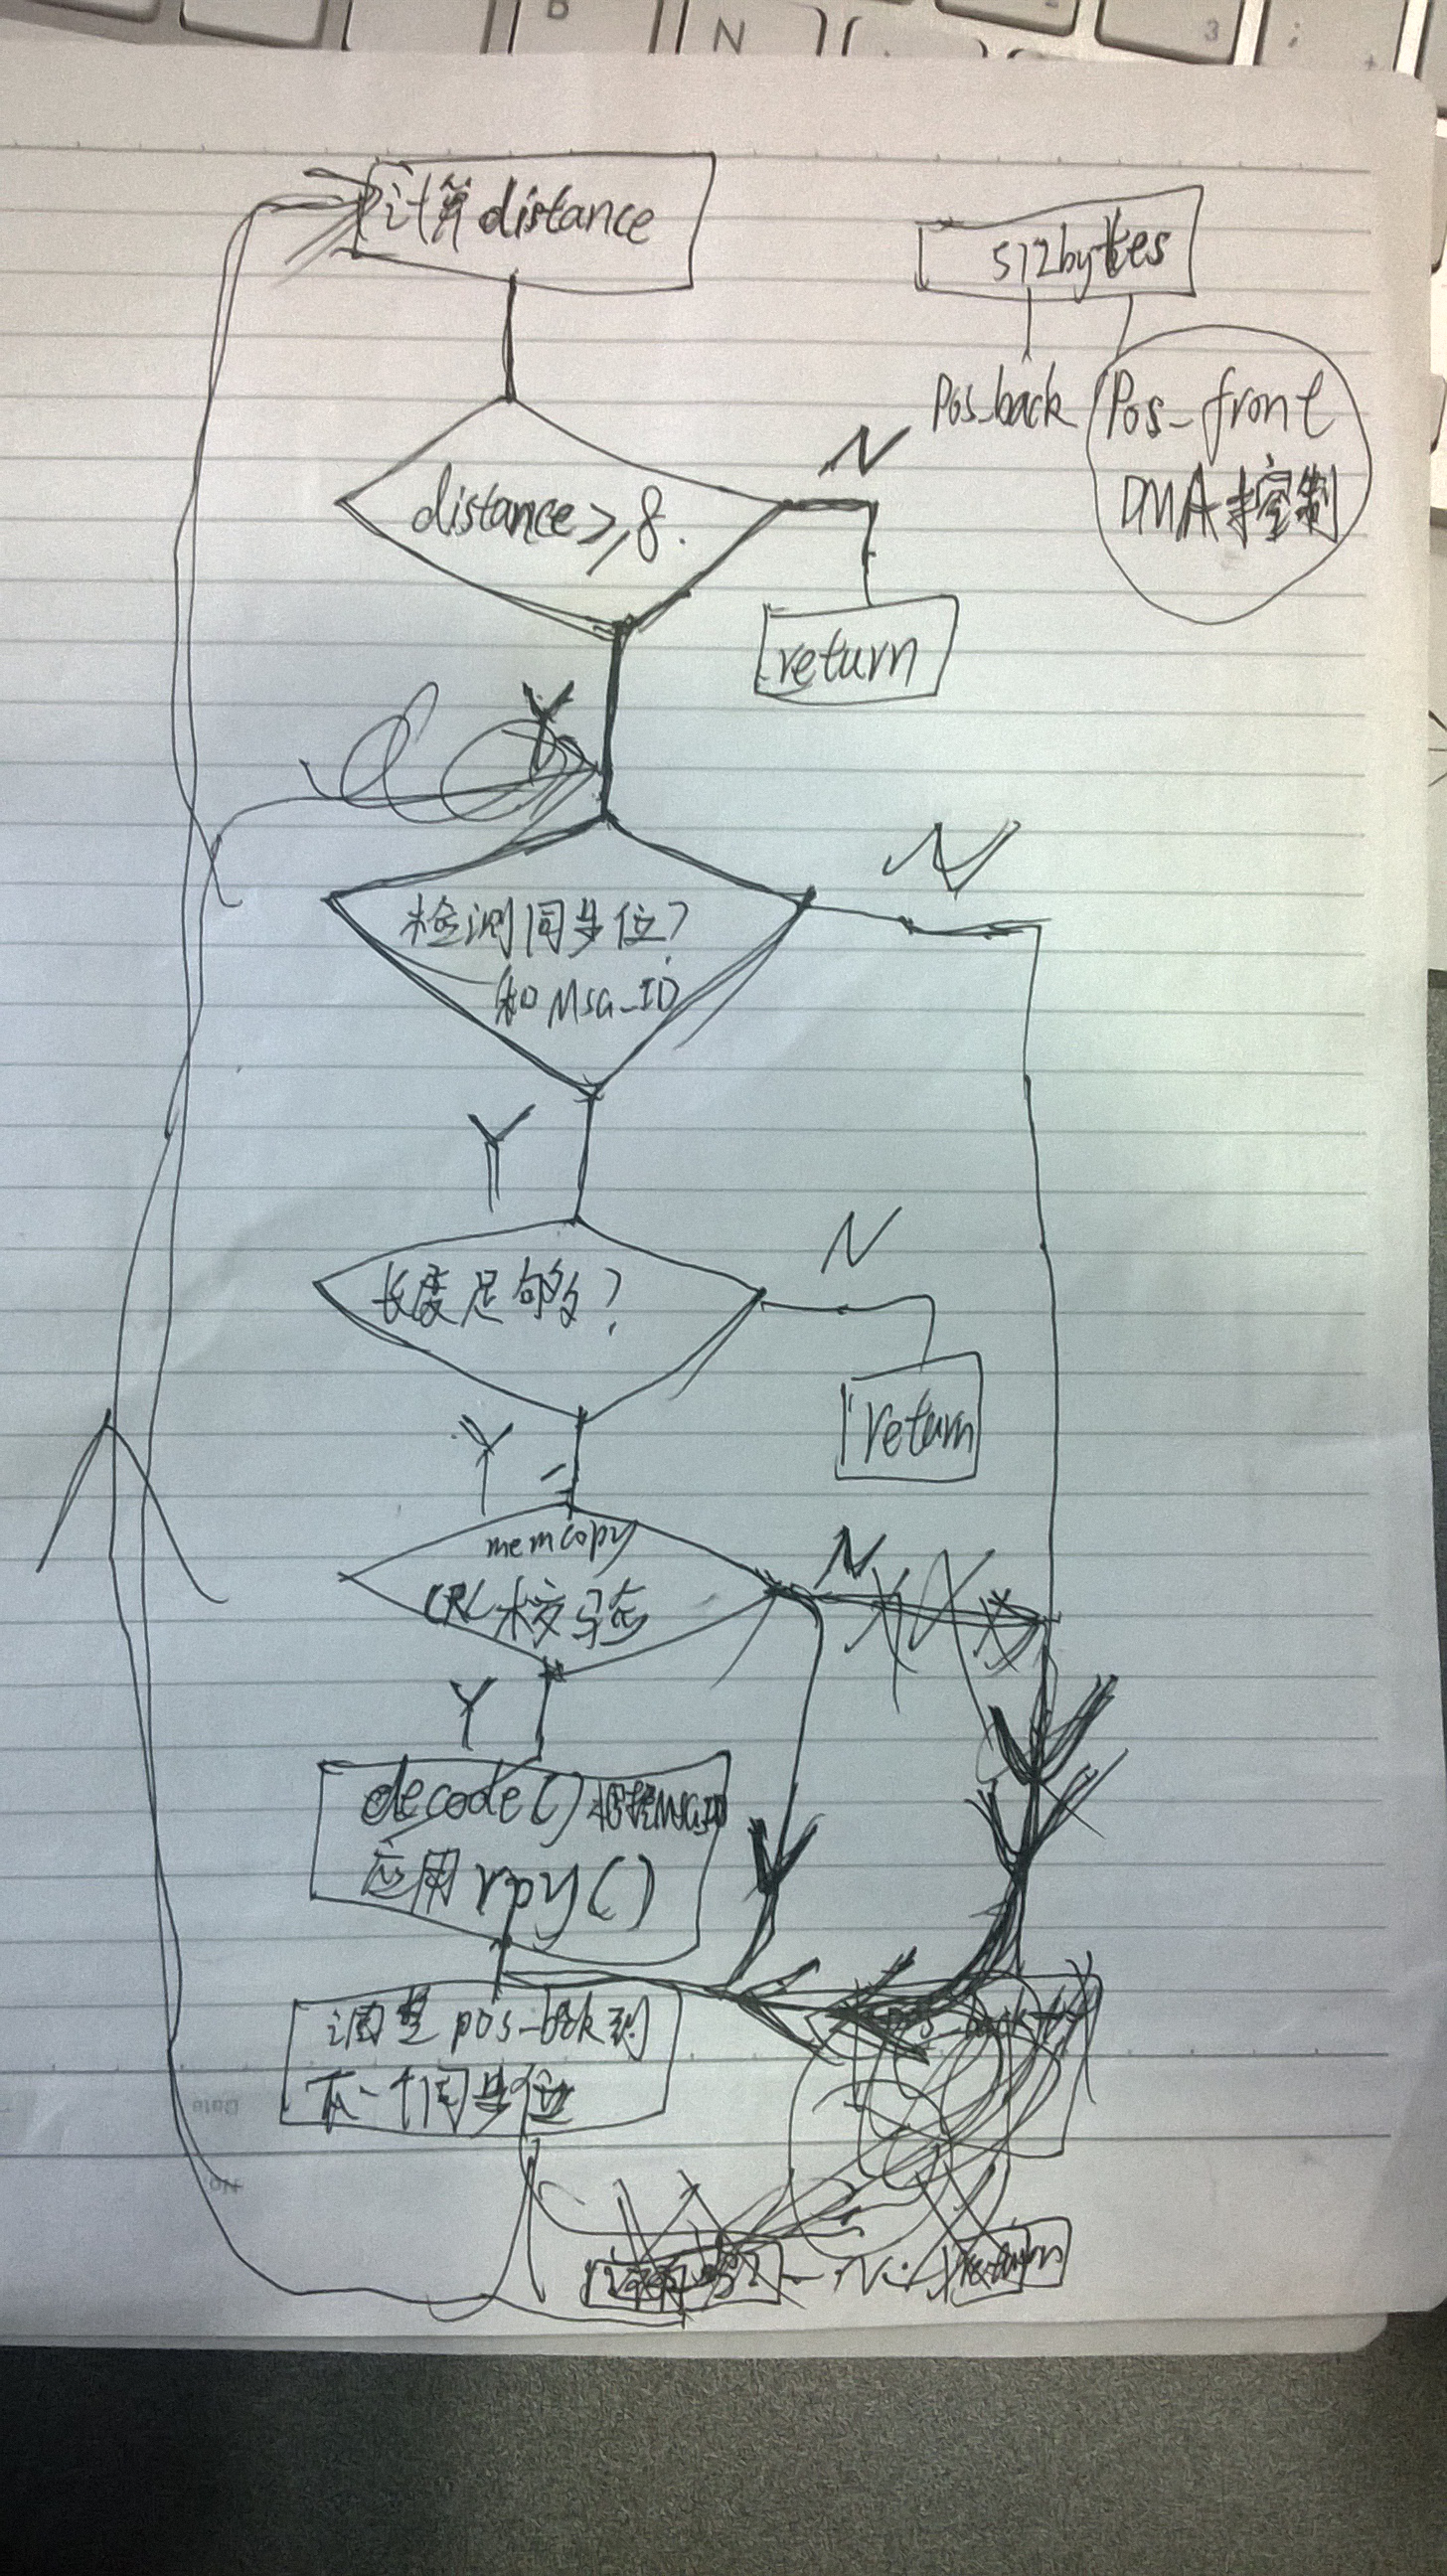 计算distance
512bytes
Pos_back
Pos_front
DMA控制
distance≥8.
N
return
Y
检测同步位?
和Msg_ID
N
Y
长度足够?
N
return
Y
memcopy
CRC校验
N
Y
decode()根据MsgID
应用rpy()
调整pos_back到
下一个同步位
N
return
Date
No.
B
N
3
;